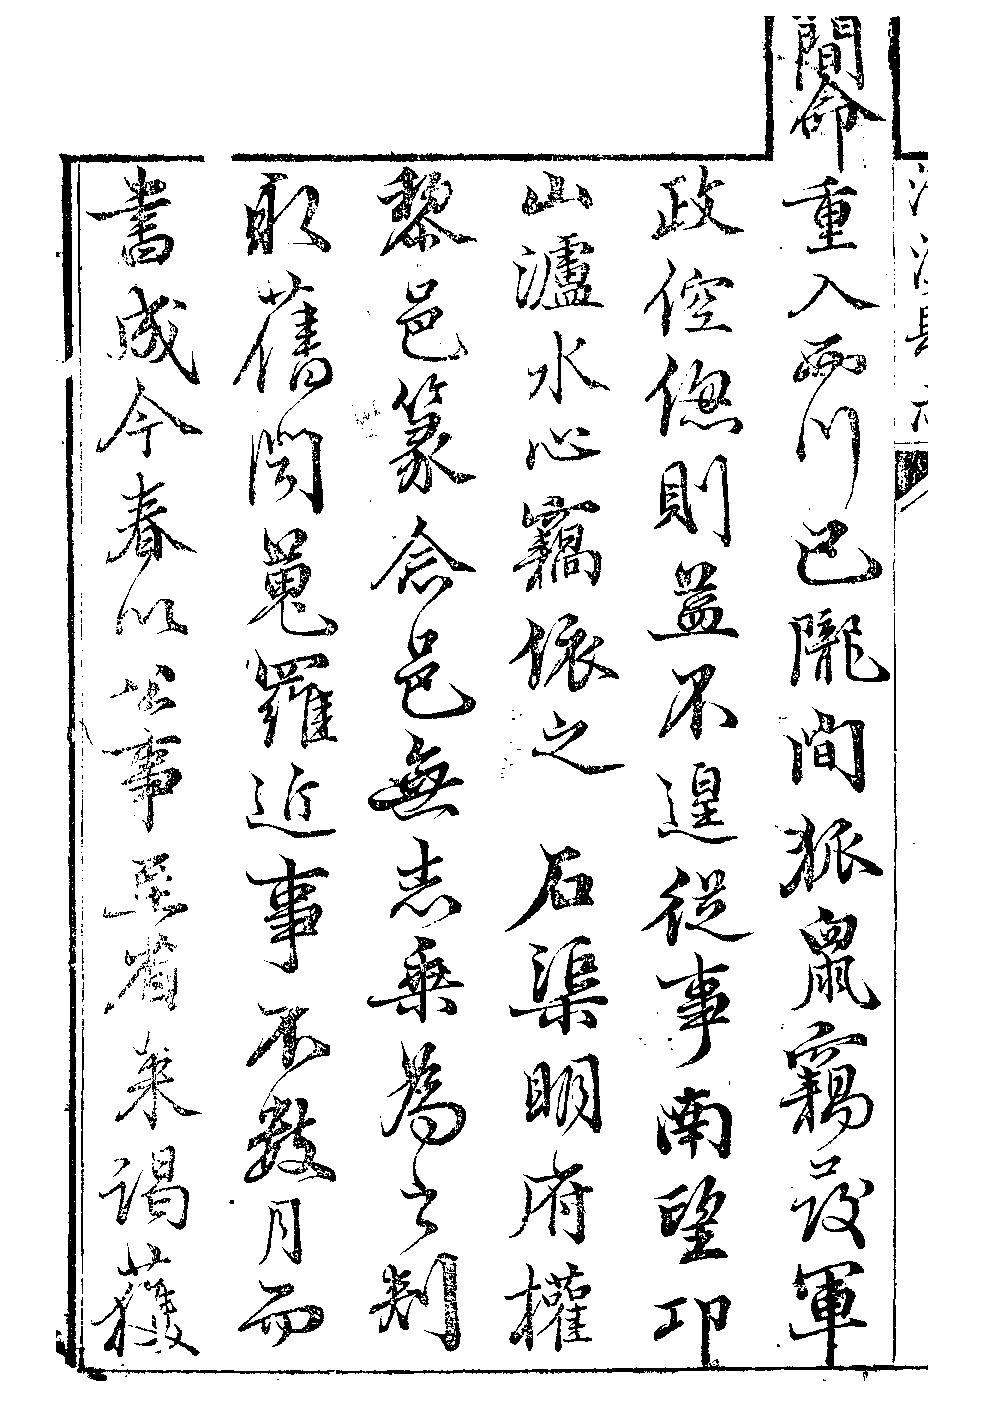 簡命重入西川巴隴間狐鼠竊發軍
政倥傯則益不遑從事南望邛
山瀘水心竊依之石渠明府權
黎邑篆念邑無志乘為之剏
取舊聞蒐羅近事不數月而
書成今春以公事至省來謁獲